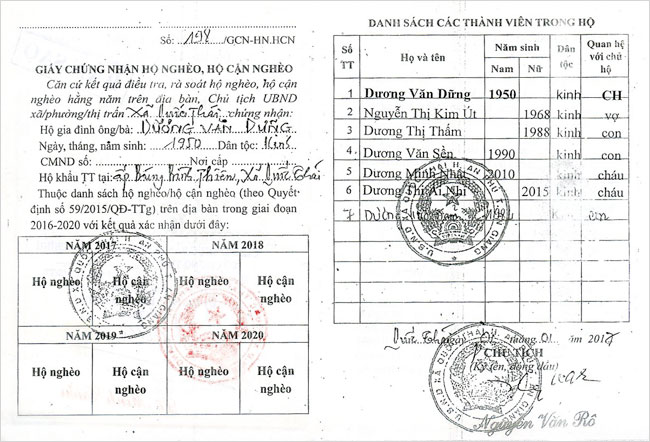 Số: 198 /GCN-HN.HCN
GIẤY CHỨNG NHẬN HỘ NGHÈO, HỘ CẬN NGHÈO
Căn cứ kết quả điều tra, rà soát hộ nghèo, hộ cận
nghèo hằng năm trên địa bàn, Chủ tịch UBND
xã/phường/thị trấn Xã Quốc Thái xứng nhận:
Hộ gia đình ông/bà: DƯƠNG VĂN DỮNG
Ngày, tháng, năm sinh: 1950 Dân tộc: Kinh
CMND số: Nơi cấp
Hộ khẩu TT tại: ấp Đồng Xã Quốc Thái
Thuộc danh sách hộ nghèo/hộ cận nghèo (theo Quyết
định số 59/2015/QĐ-TTg) trên địa bàn trong giai đoạn
2016-2020 với kết quả xác nhận dưới đây:
NĂM 2017 NĂM 2018
Hộ nghèo Hộ cận nghèo Hộ nghèo Hộ cận nghèo
NĂM 2019 NĂM 2020
Hộ nghèo Hộ cận nghèo Hộ nghèo Hộ cận nghèo
DANH SÁCH CÁC THÀNH VIÊN TRONG HỘ
Số TT Họ và tên Năm sinh Nam Nữ Dân tộc Quan hệ với chủ hộ
1 Dương Văn Dững 1950 kinh CH
2 Nguyễn Thị Kim Út 1968 kinh vợ
3 Dương Thị Thấm 1988 kinh con
4 Dương Văn Sền 1990 kinh con
5 Dương Minh Nhật 2010 kinh cháu
6 Dương Thị Ái Nhi 2015 kinh cháu
7 Dương
Quốc Thái, ngày 01 tháng 01 năm 2017
CHỦ TỊCH
(Ký tên, đóng dấu)
Nguyễn Văn Rô